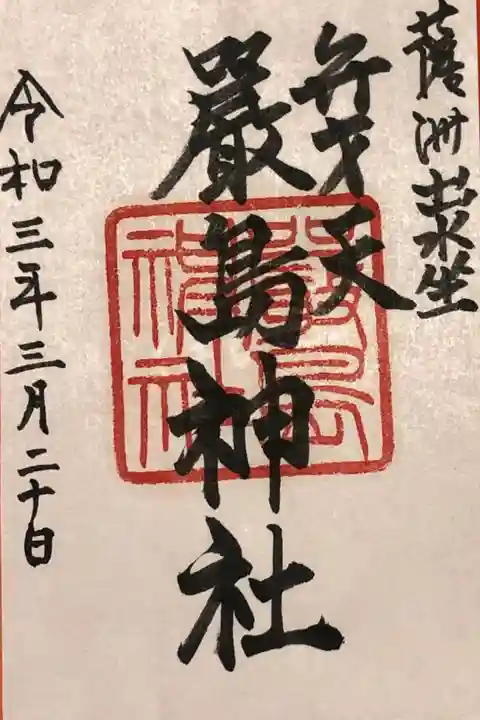 薩洲 坐
弁才天
嚴島神社
嚴島
神社
令和三年三月二十日